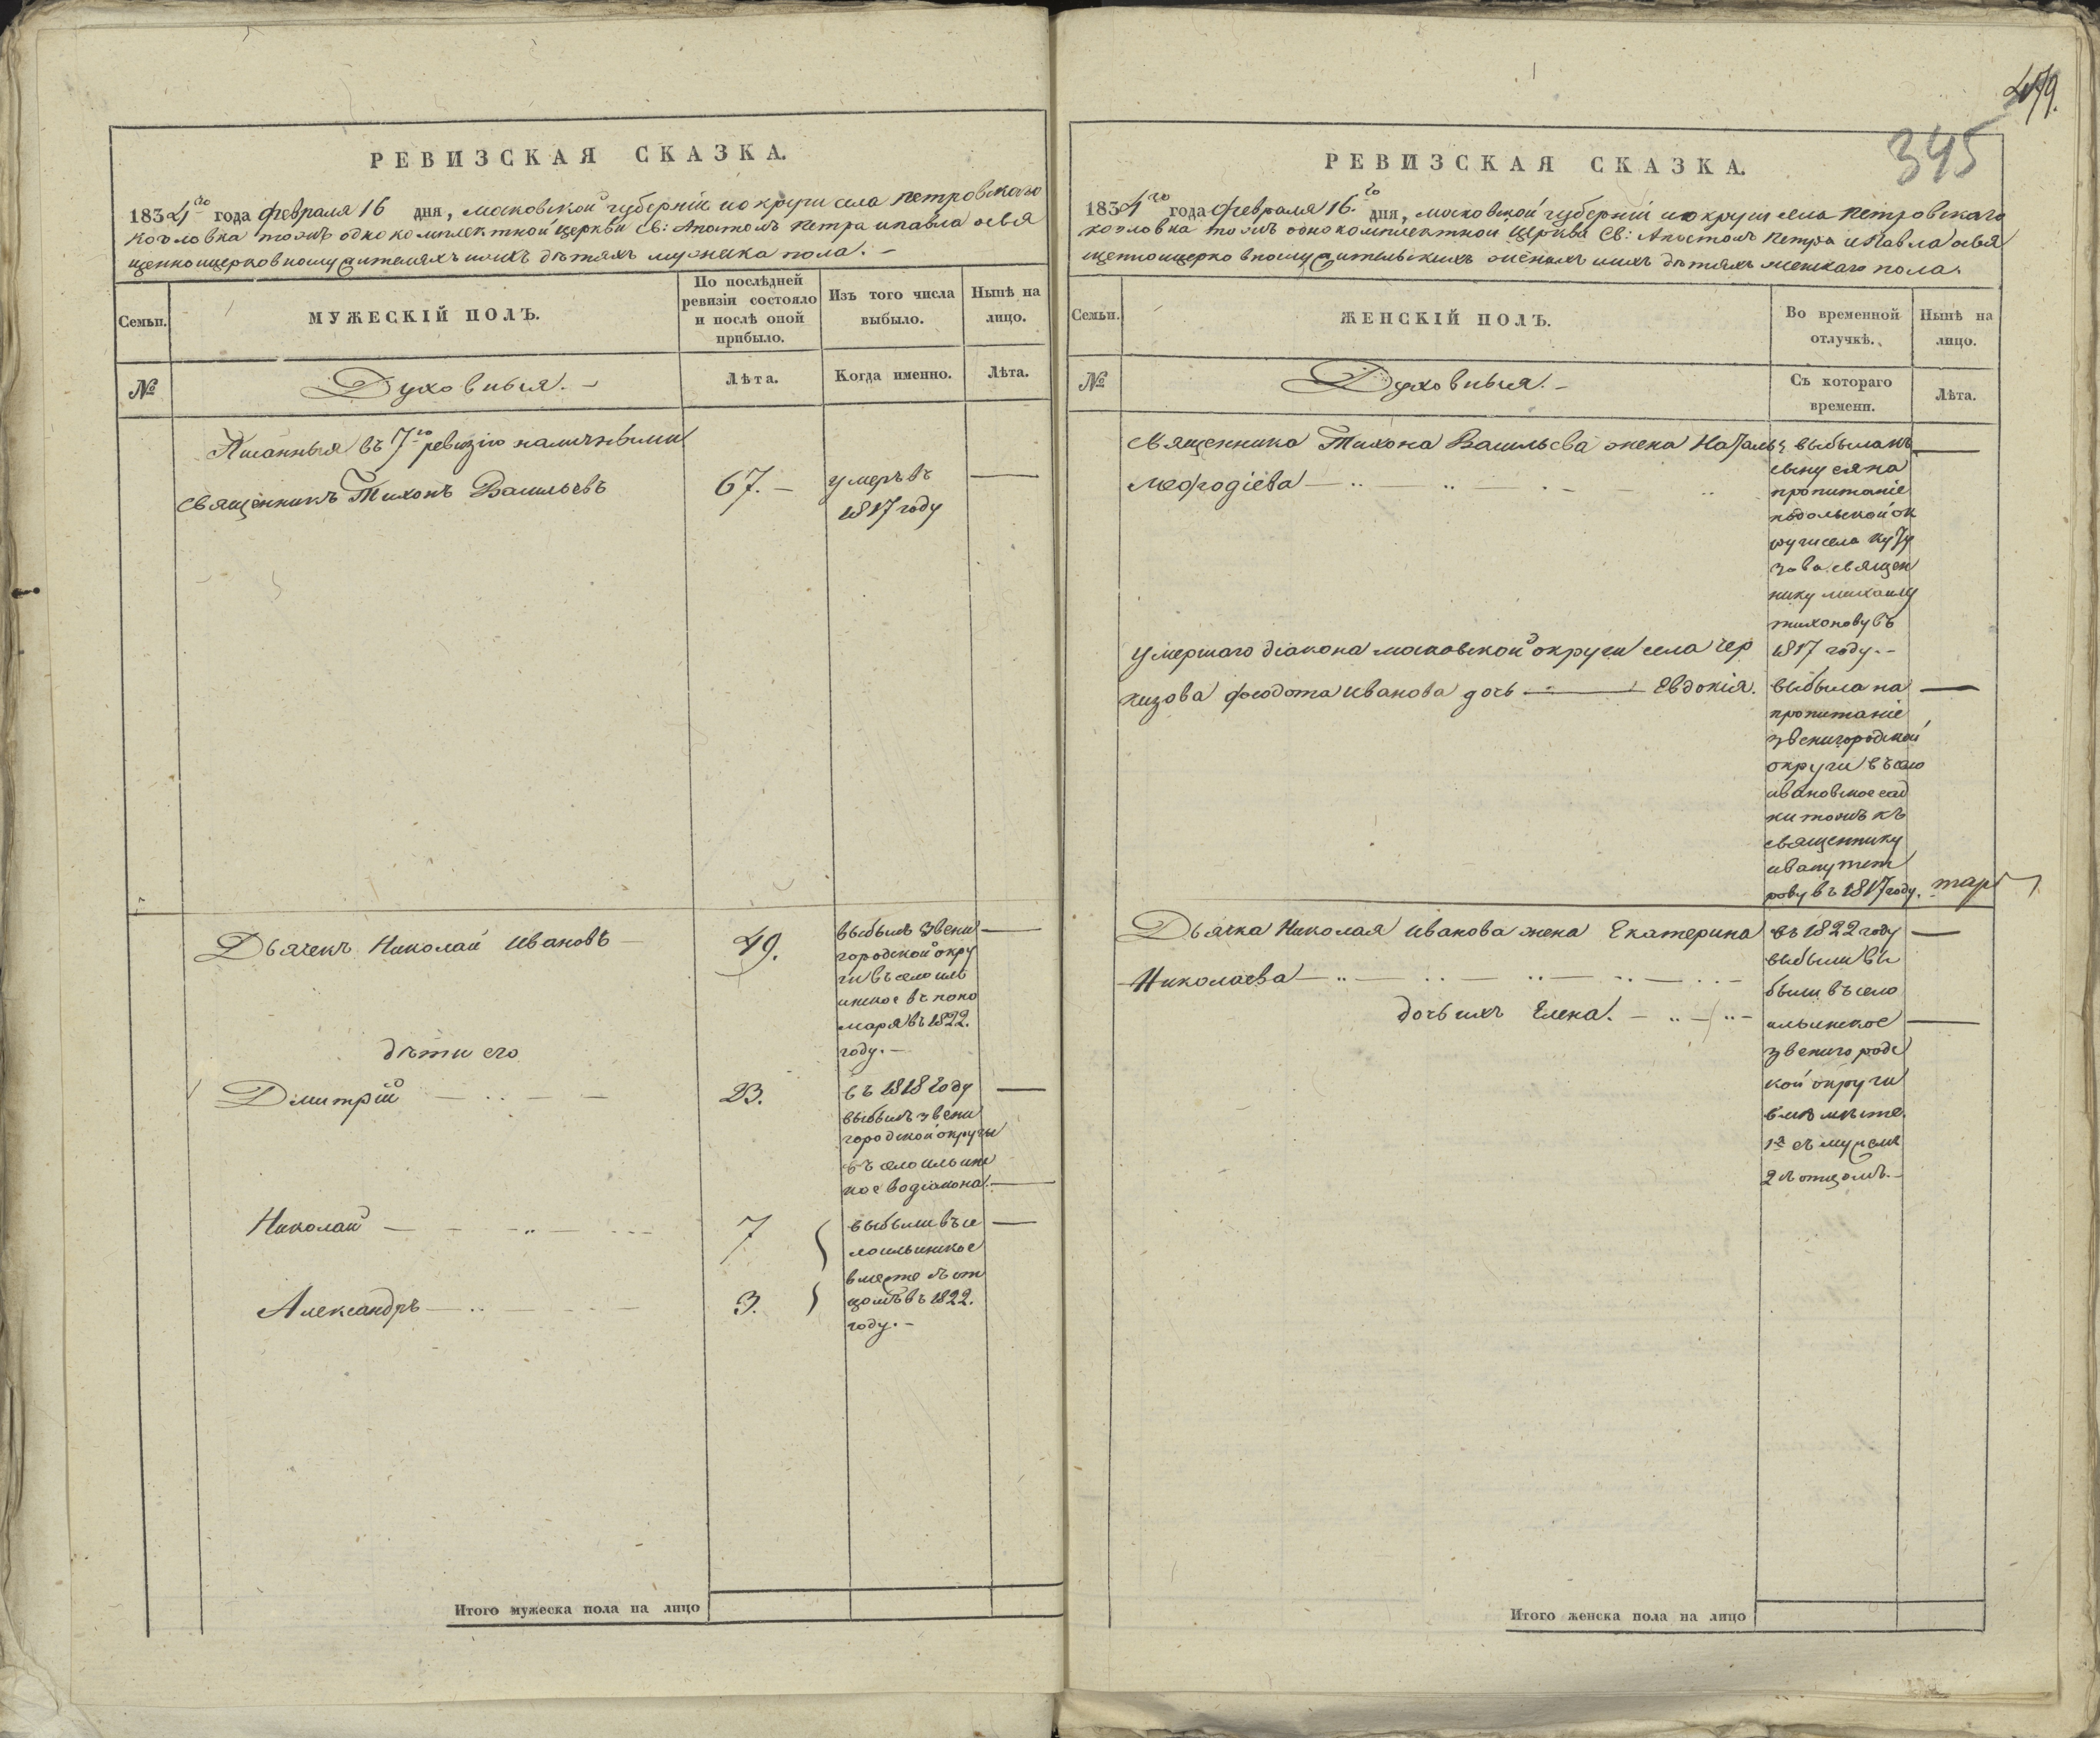 РЕВИЗСКАЯ СКАЗКА.
1834го года февраля 16 дня, московской губерніи и округи села петровскаго
козловка тожъ однокомплектной церкви св: Апостолъ петра и павла освя
щенноцерковнослужителяхъ и ихъ дѣтяхъ мужеска пола. –
Семьи.
МУЖЕСКІЙ ПОЛЪ.
По послѣдней
ревизіи состояло
и послѣ оной
прибыло.
Изъ того числа
выбыло.
Нынѣ на
лицо.
№
Духовныя. –
Лѣта.
Когда именно.
Лѣта.
Писанныя въ 7го ревизію наличными
священникъ Тихонъ Васильевъ
67. –
умеръ въ
1817 году
Дьячекъ Николай Ивановъ
49.
выбылъ Звени
городской окру
ги въ село иль
инское въ поно
маря въ 1822.
году. –
дѣти его
Димитрій
23.
въ 1818 году
выбылъ звени
городской округи
въ село ильин
кое во діакона.
Николай
7
выбыли въ се
ло ильинское
вместе съ от
цомъ въ 1822.
году. –
Александръ
3.
Итого мужеска пола на лицо
479.
345
РЕВИЗСКАЯ СКАЗКА.
1834го года февраля 16.го дня, московской губерніи и округи села петровскаго
козловка тожъ однокомплектной церкви св: Апостолъ Петра и Павла освя
щенноцерковнослужительскихъ женахъ и ихъ дѣтяхъ женскаго пола.
Семьи.
ЖЕНСКІЙ ПОЛЪ.
Во временной
отлучкѣ.
Нынѣ на
лицо.
№
Духовныя. –
Съ котораго
времени.
Лѣта.
священника Тихона Васильева жена Наталья
меѳодіева
выбыла къ
сыну на
пропитаніе
подольской ок
руги села куту
зова священ
нику михаилу
тихонову въ
1817 году. –
умершаго діакона московской округи села чер
кизова ѳеодота иванова дочь Евдокія.
выбыла на
пропитаніе
звенигородской
округи въ село
ивановское сад
ки тожъ къ
священнику
ивану пет
рову въ 1817 году.
Дьячка Николая иванова жена Екатерина
Николаева
дочь ихъ Елена.
въ 1822 году
выбыли вы
были въ село
ильинское
звенигородс
кой округи
1я съ мужемъ
2 съ отцомъ. –
Итого женска пола на лицо